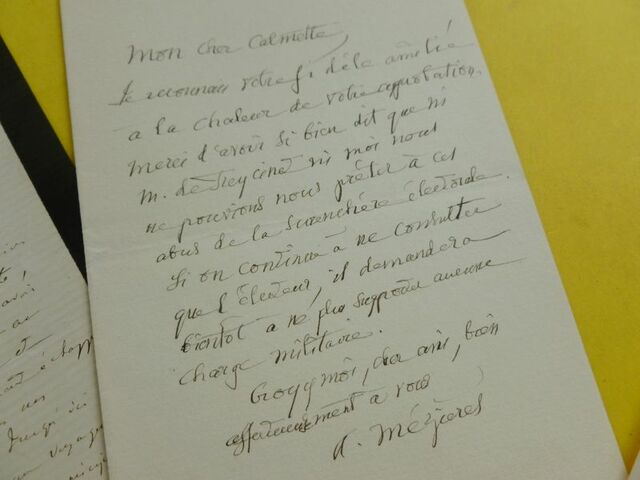 Mon cher Calmette,
Je reconnais votre fidèle amitié
a la chaleur de votre approbation.
Merci d'avoir si bien dit que ni
M. de Freycinet ni moi nous
ne pouvions nous prêter à ces
abus de la surenchère électorale.
Si on continue à ne consulter
que l'électeur, il demandera
bientôt a ne plus supporter aucune
charge militaire.
Croyez moi, cher ami, bien
affectueusement a vous
A. Mézières